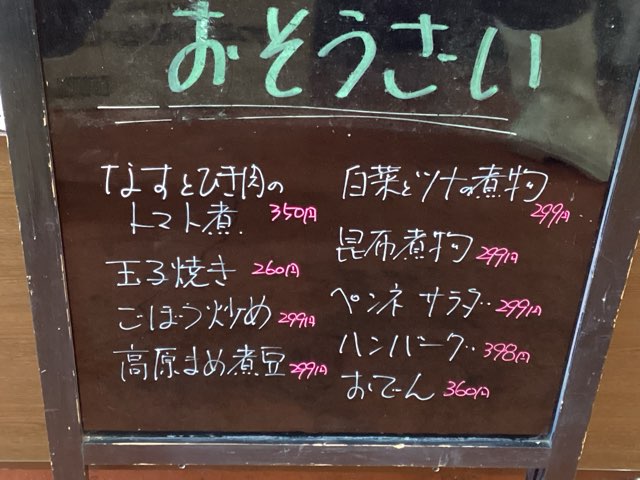 おそうさい
なすとひき肉の
トマト煮 350円
玉子焼き 260円
ごぼう炒め 299円
高原まめ煮豆 299円
白菜とツナの煮物
299円
昆布煮物 299円
ペンネサラダ 299円
ハンバーグ 398円
おでーん 360円